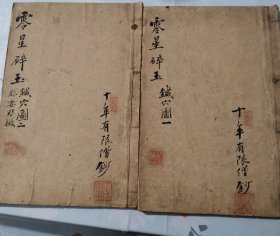 零星碎玉
鍼穴圖一
十年有限僧鈔
零星碎玉
鍼穴圖二
十年有限僧鈔